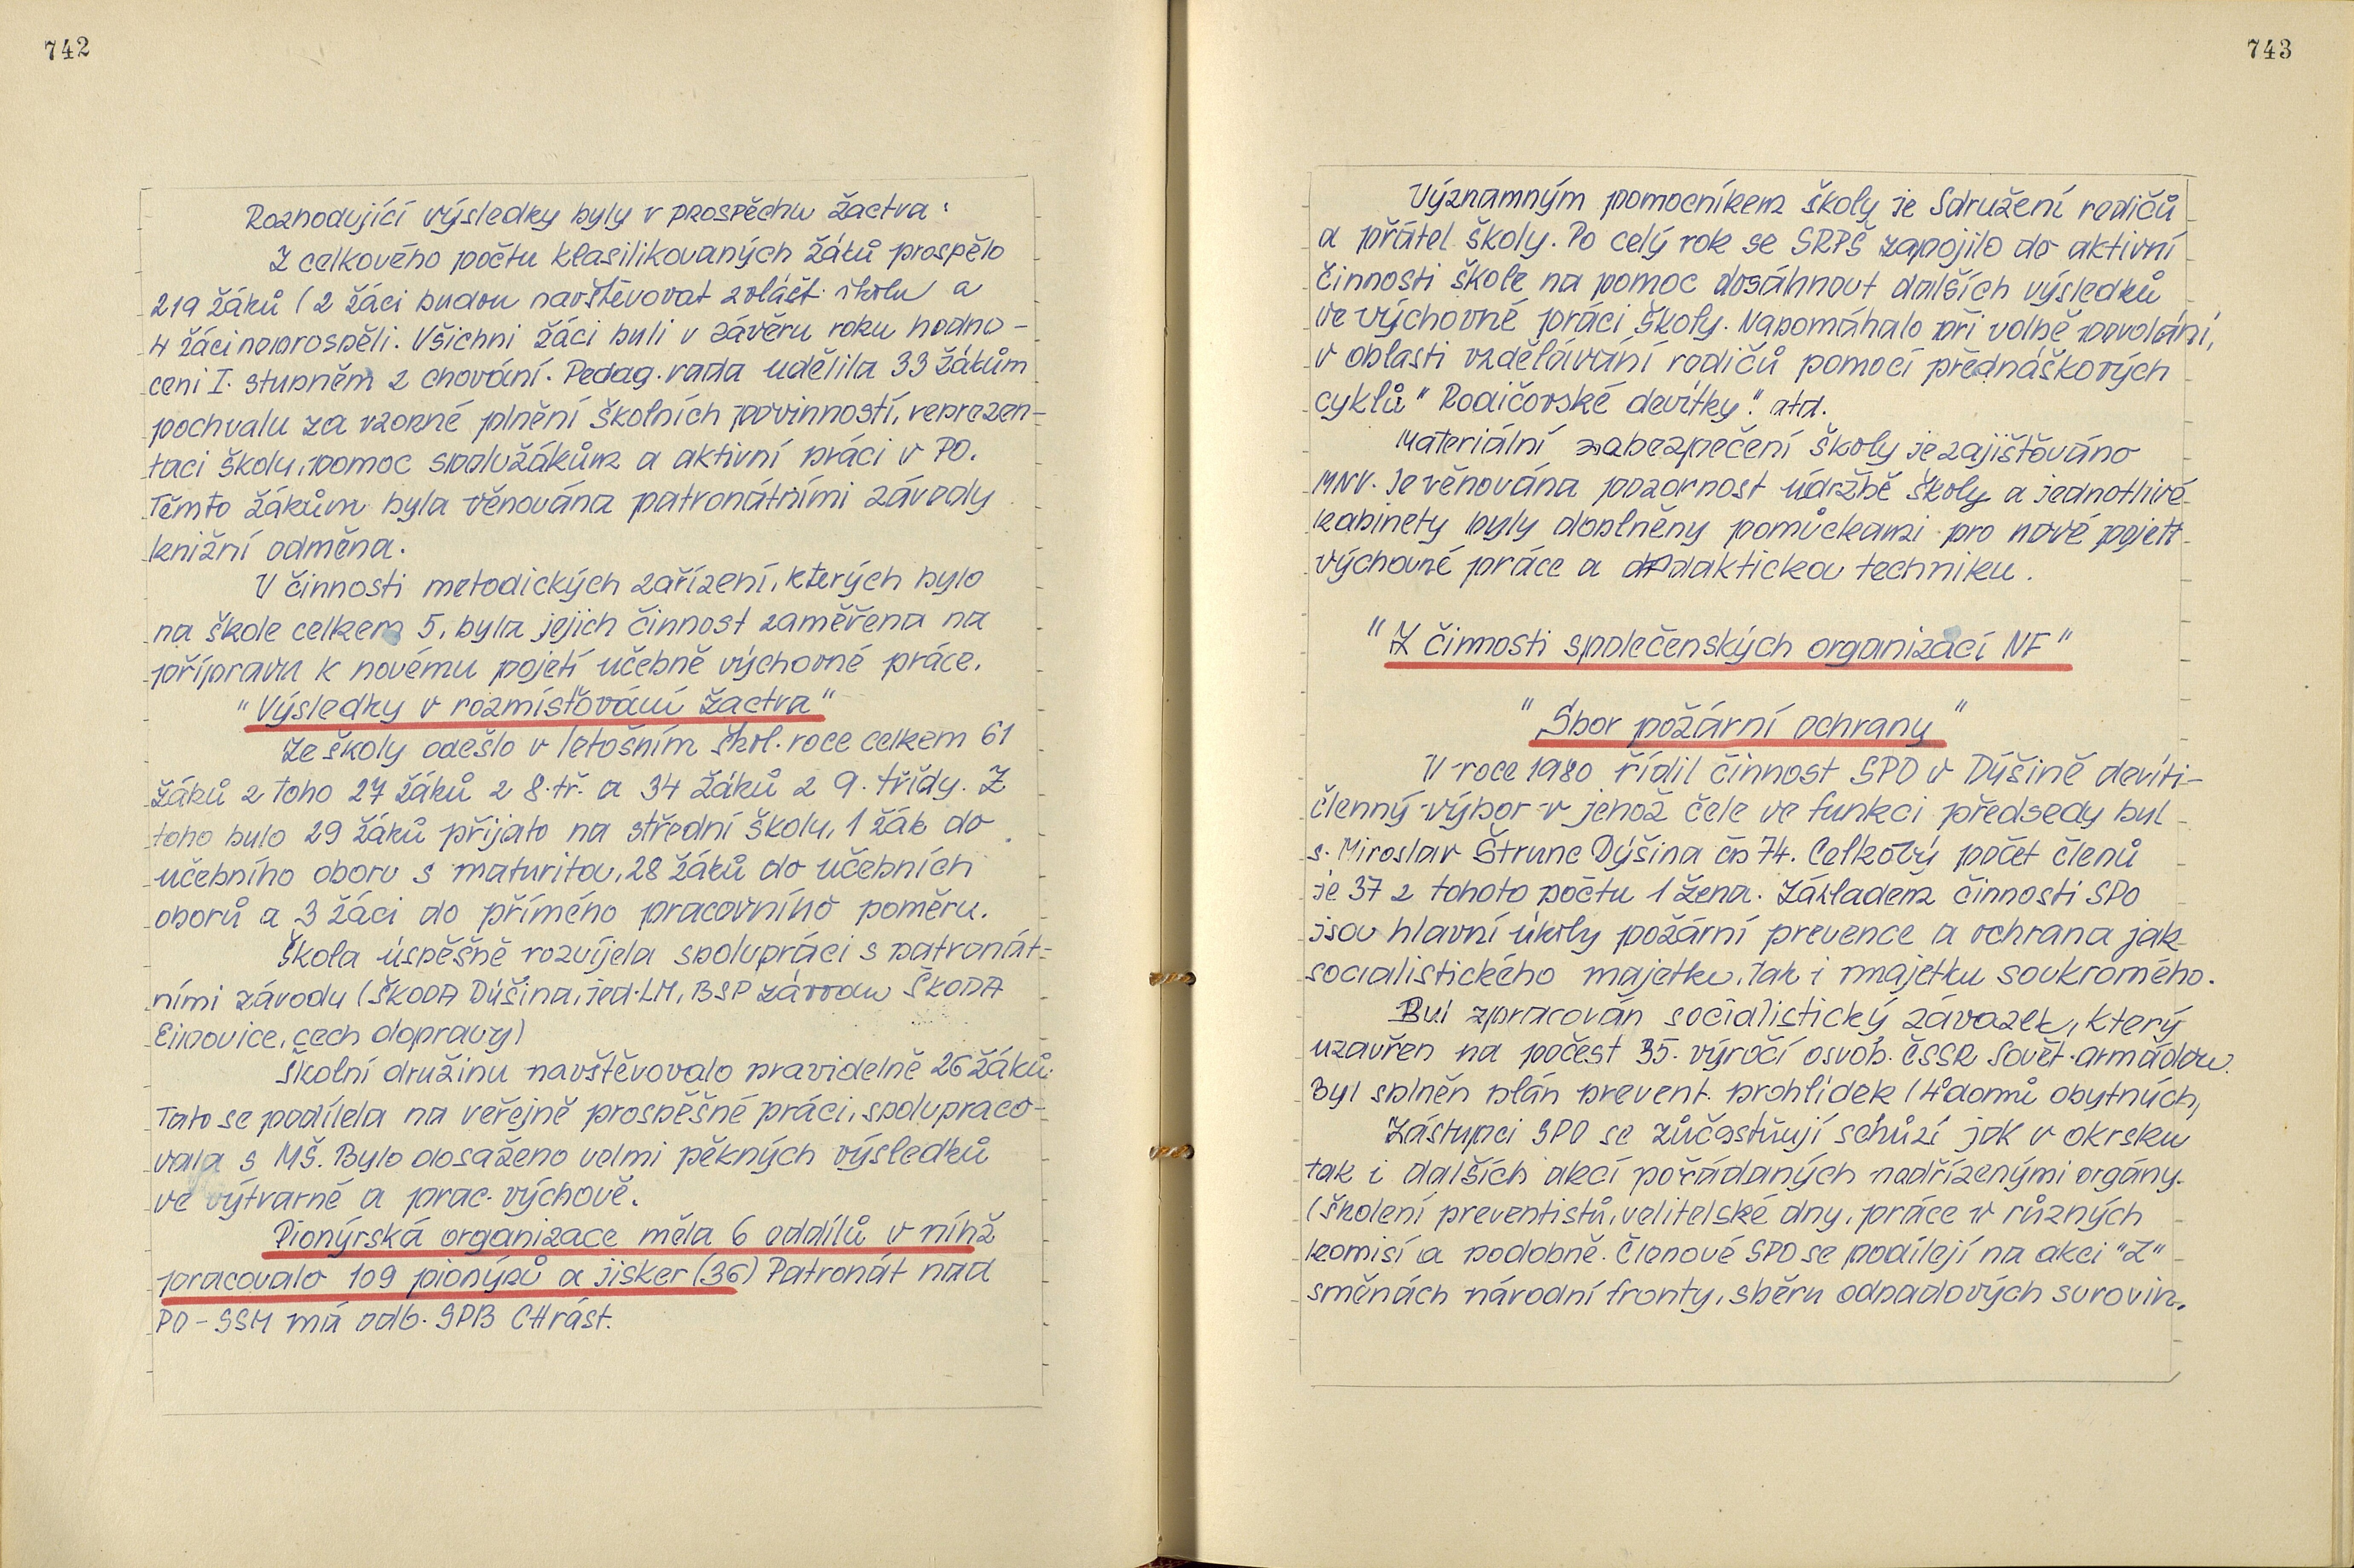 742
Rozhodující výsledky byly v prospěchu žactva:
Z celkového počtu klasilikovaných žáků prospělo
219 žáků (2 žáci budou navštěvovat zvlášt. školu a
4 žáci neprospěli. Všichni žáci byli v závěru roku hodno-
ceni I. stupněm z chování. Pedag. rada udělila 33 žákům
pochvalu za vzorné plnění školních povinností, reprezen-
taci školy, pomoc spolužákům a aktivní práci v PO.
Těmto žákům byla věnována patronátními závody
knižní odměna.
V činnosti metodických zařízení, kterých bylo
na škole celkem 5, byla jejich činnost zaměřena na
přípravu k novému pojetí učebně výchovné práce.
"Výsledky v rozmísťování žactva"
Ze školy odešlo v letošním škol. roce celkem 61
žáků z toho 27 žáků z 8. tř. a 34 žáků z 9. třídy. Z
toho bylo 29 žáků přijato na střední školy, 1 žák do
učebního oboru s maturitou, 28 žáků do učebních
oborů a 3 žáci do přímého pracovního poměru.
Škola úspěšně rozvíjela spolupráci s patronát-
ními závody (ŠKODA Dýšina, jed. LM, BSP závodu ŠKODA
Ejpovice, cech dopravy)
Školní družinu navštěvovalo pravidelně 26 žáků.
Tato se podílela na veřejně prospěšné práci, spolupraco-
vala s MŠ. Bylo dosaženo velmi pěkných výsledků
ve výtvarné a prac. výchově.
Pionýrská organizace měla 6 oddílů v níhž
pracovalo 109 pionýrů a jisker (36) Patronát nad
PO - SSM má odb. SPB CHrást.
743
Významným pomocníkem školy je Sdružení rodičů
a přátel školy. Po celý rok se SRPŠ zapojilo do aktivní
činnosti škole na pomoc dosáhnout dalších výsledků
ve výchovné práci školy. Napomáhalo při volbě povolání,
v oblasti vzdělávání rodičů pomocí přednáškových
cyklů "Rodičovské devítky". atd.
Materiální zabezpečení školy je zajišťováno
MNV. Je věnována pozornost údržbě školy a jednotlivé
kabinety byly doplněny pomůckami pro nové pojetí
výchovné práce a didaktickou techniku.
"Z činnosti společenských organizací NF"
"Sbor požární ochrany"
V roce 1980 řídil činnost SPO v Dýšině devíti-
členný výbor v jehož čele ve funkci předsedy byl
s. Miroslav Štrunc Dýšina čp 74. Celkový počet členů
je 37 z tohoto počtu 1 žena. Základem činnosti SPO
jsou hlavní úkoly požární prevence a ochrana jak
socialistického majetku, tak i majetku soukromého.
Byl zpracován socialistický závazek, který
uzavřen na počest 35. výročí osvob. ČSSR Sovět. armádou.
Byl splněn plán prevent. prohlídek (4 domů obytných)
Zástupci SPO se zůčastňují schůzí jak v okrsku
tak i dalších akcí pořádaných nadřízenými orgány.
(Školení preventistů, velitelské dny, práce v různých
komisí a podobně. Členové SPO se podílejí na akci "Z"
směnách národní fronty, sběru odpadových surovin.